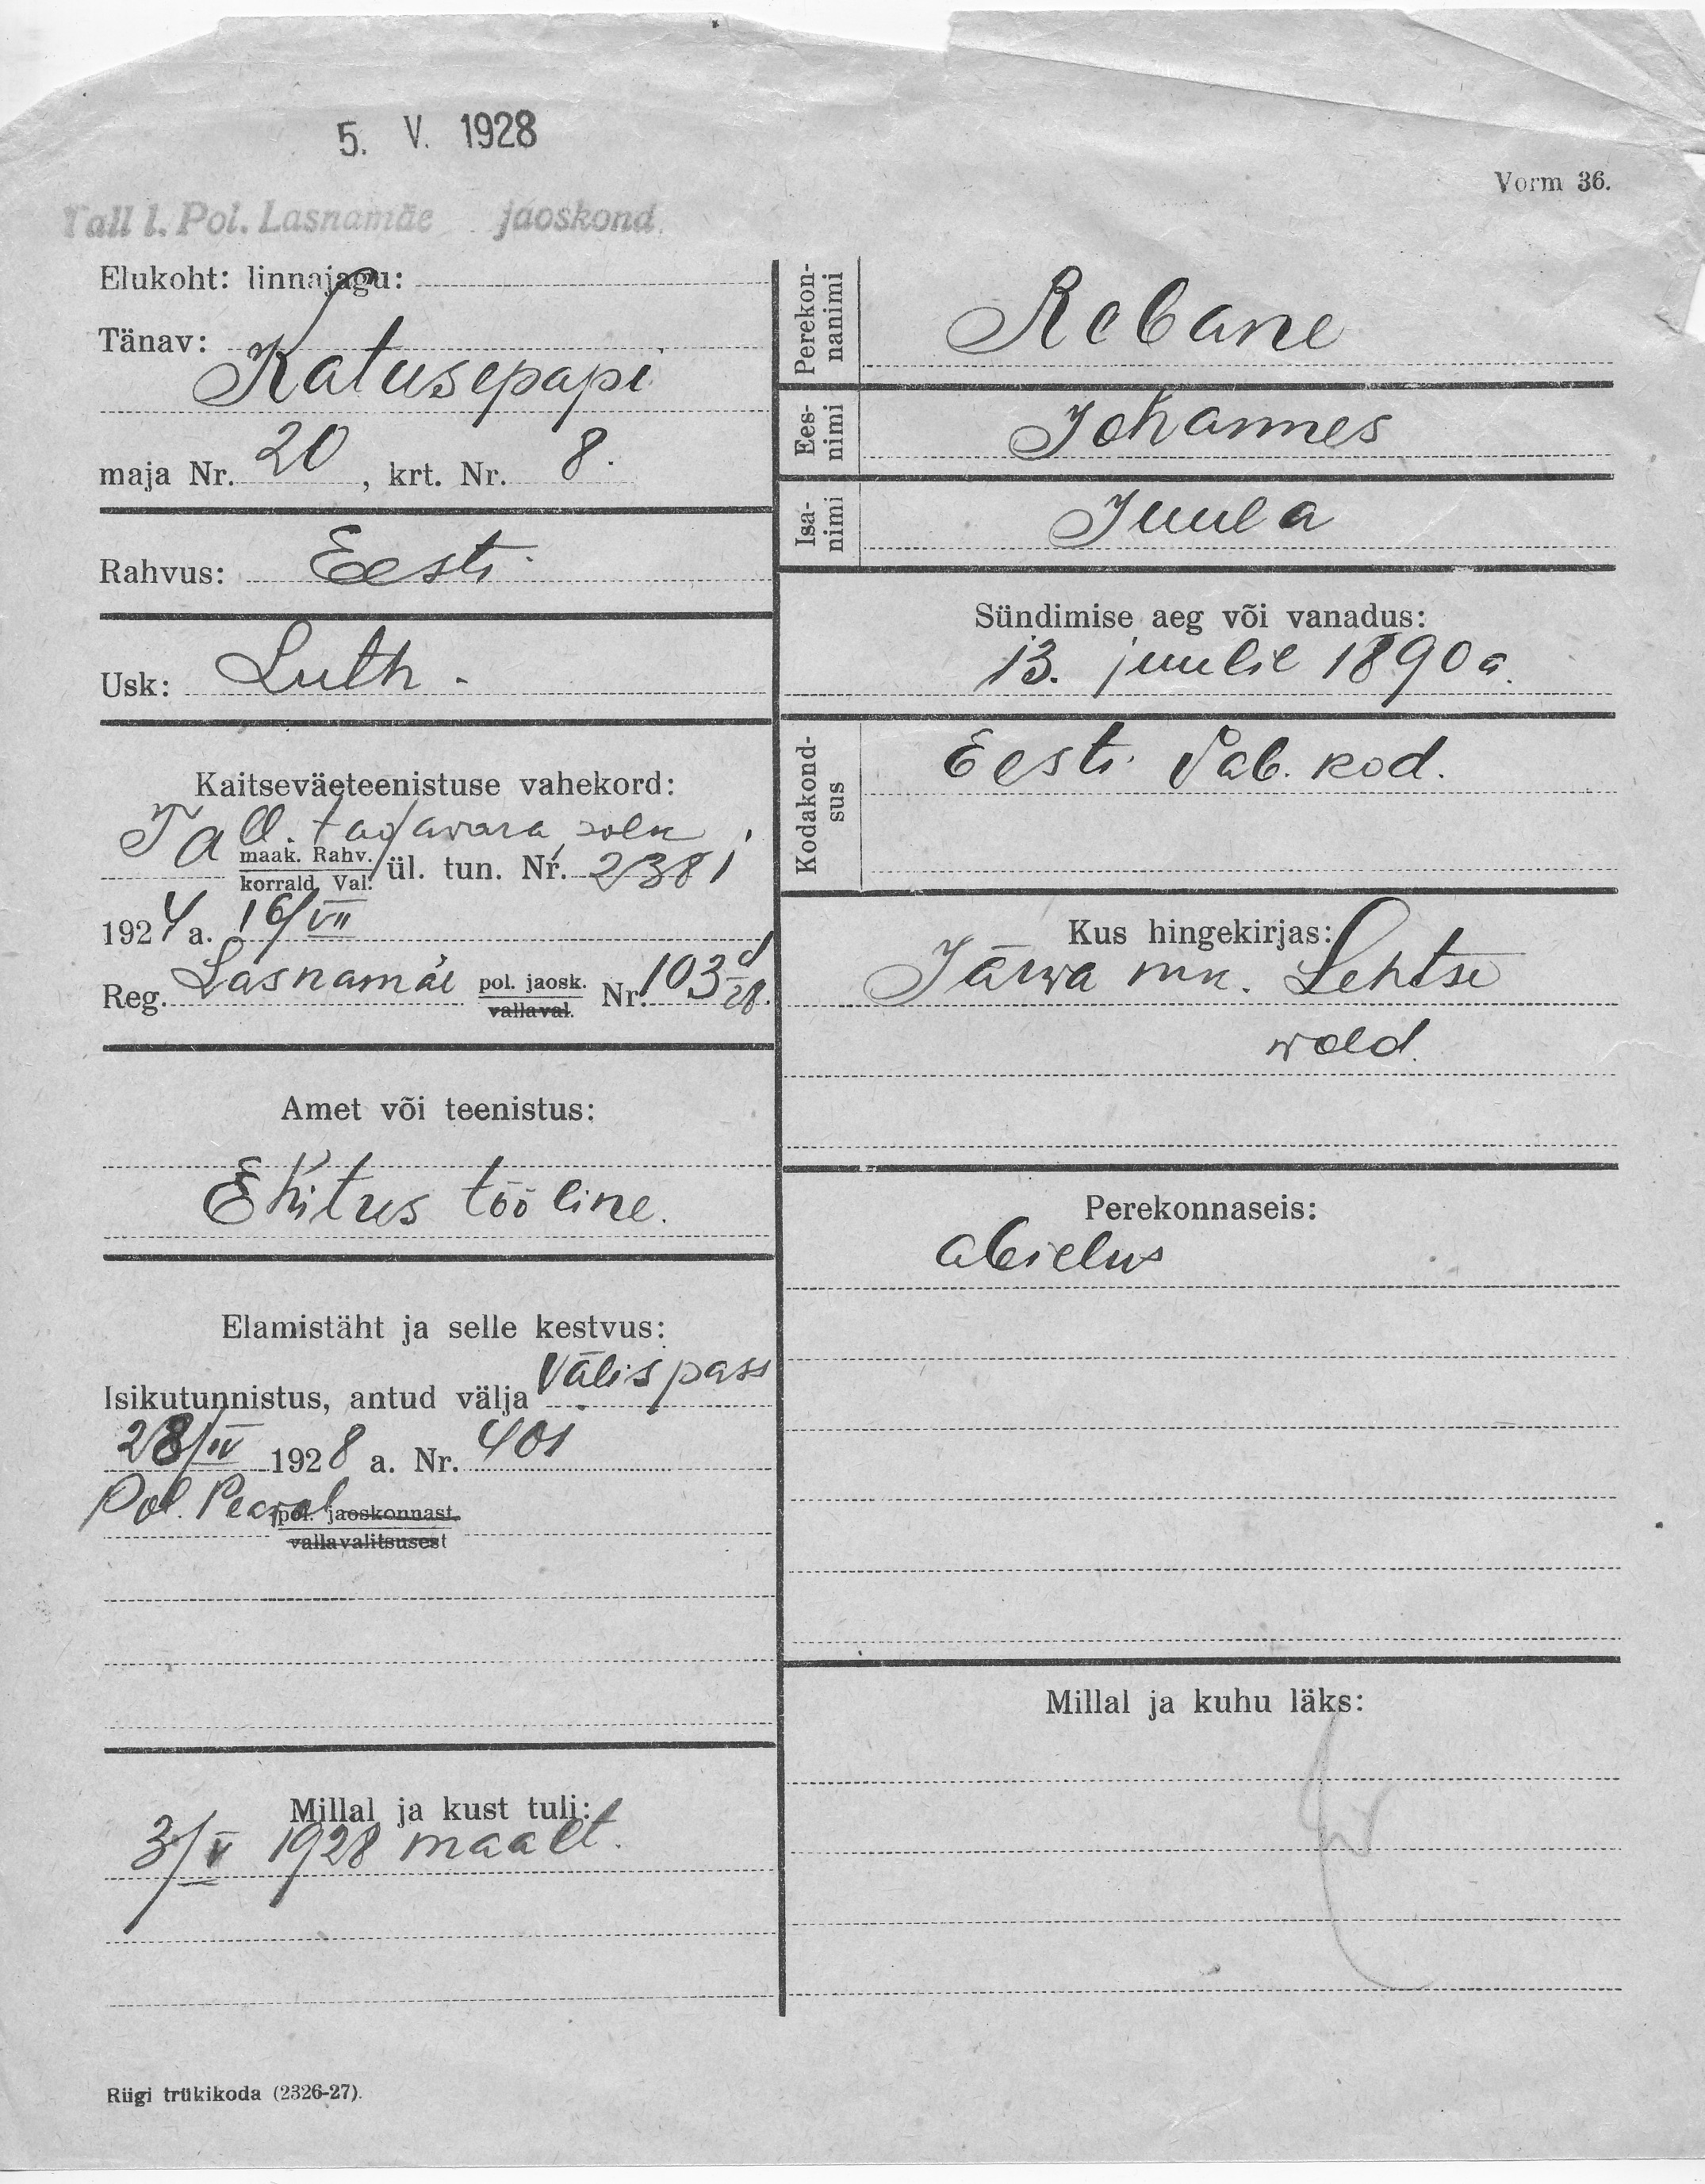 5. V. 1928
Vorm 36.
Tall l. Pol. Lasnamäe jaoskond.
Elukoht: linnajagu:
Tänav:
Katusepapi
maja Nr. 20, krt. Nr. 8.
Rahvus: Eesti
Usk: Luth.
Kaitseväeteenistuse vahekord:
Tall. tagavara
maak. Rahv.
korrald. Val.
ül. tun. Nr. 2381
1924 a. 16/VII
Reg. Lasnamäe pol. jaosk. Nr. 103
vallaval.
Amet või teenistus:
Ehitus tööline.
Elamistäht ja selle kestvus:
Isikutunnistus, antud välja Välispass
28/IV 1928 a. Nr. 401
Pol. Peaval pol. jaoskonnast.
vallavalitsusest
Millal ja kust tuli:
3/V 1928 maalt.
Riigi trükikoda (2326-27).
Perekon-
nanimi
Rebane
Ees-
nimi
Johannes
Isa-
nimi
Juula
Sündimise aeg või vanadus:
13. juulil 1890 a.
Kodakond-
sus
Eesti Vab. kod.
Kus hingekirjas:
Järwa mk. Lehtse
wald.
Perekonnaseis:
abielus
Millal ja kuhu läks: